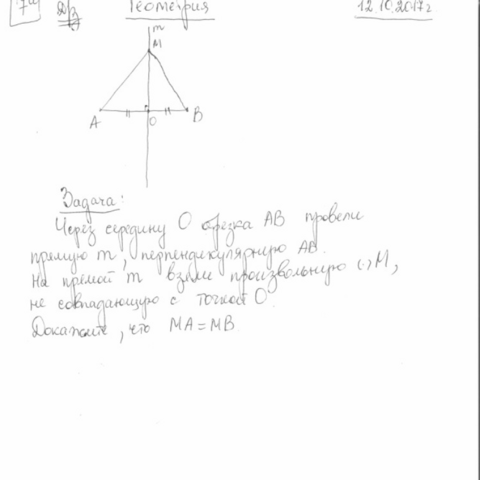 Д/З Геометрия 12.10.2017г
m
M
A O B
Задача:
Через середину O отрезка AB провели
прямую m, перпендикулярную AB.
На прямой m взяли произвольную (·) M,
не совпадающую с точкой O.
Докажите, что MA=MB